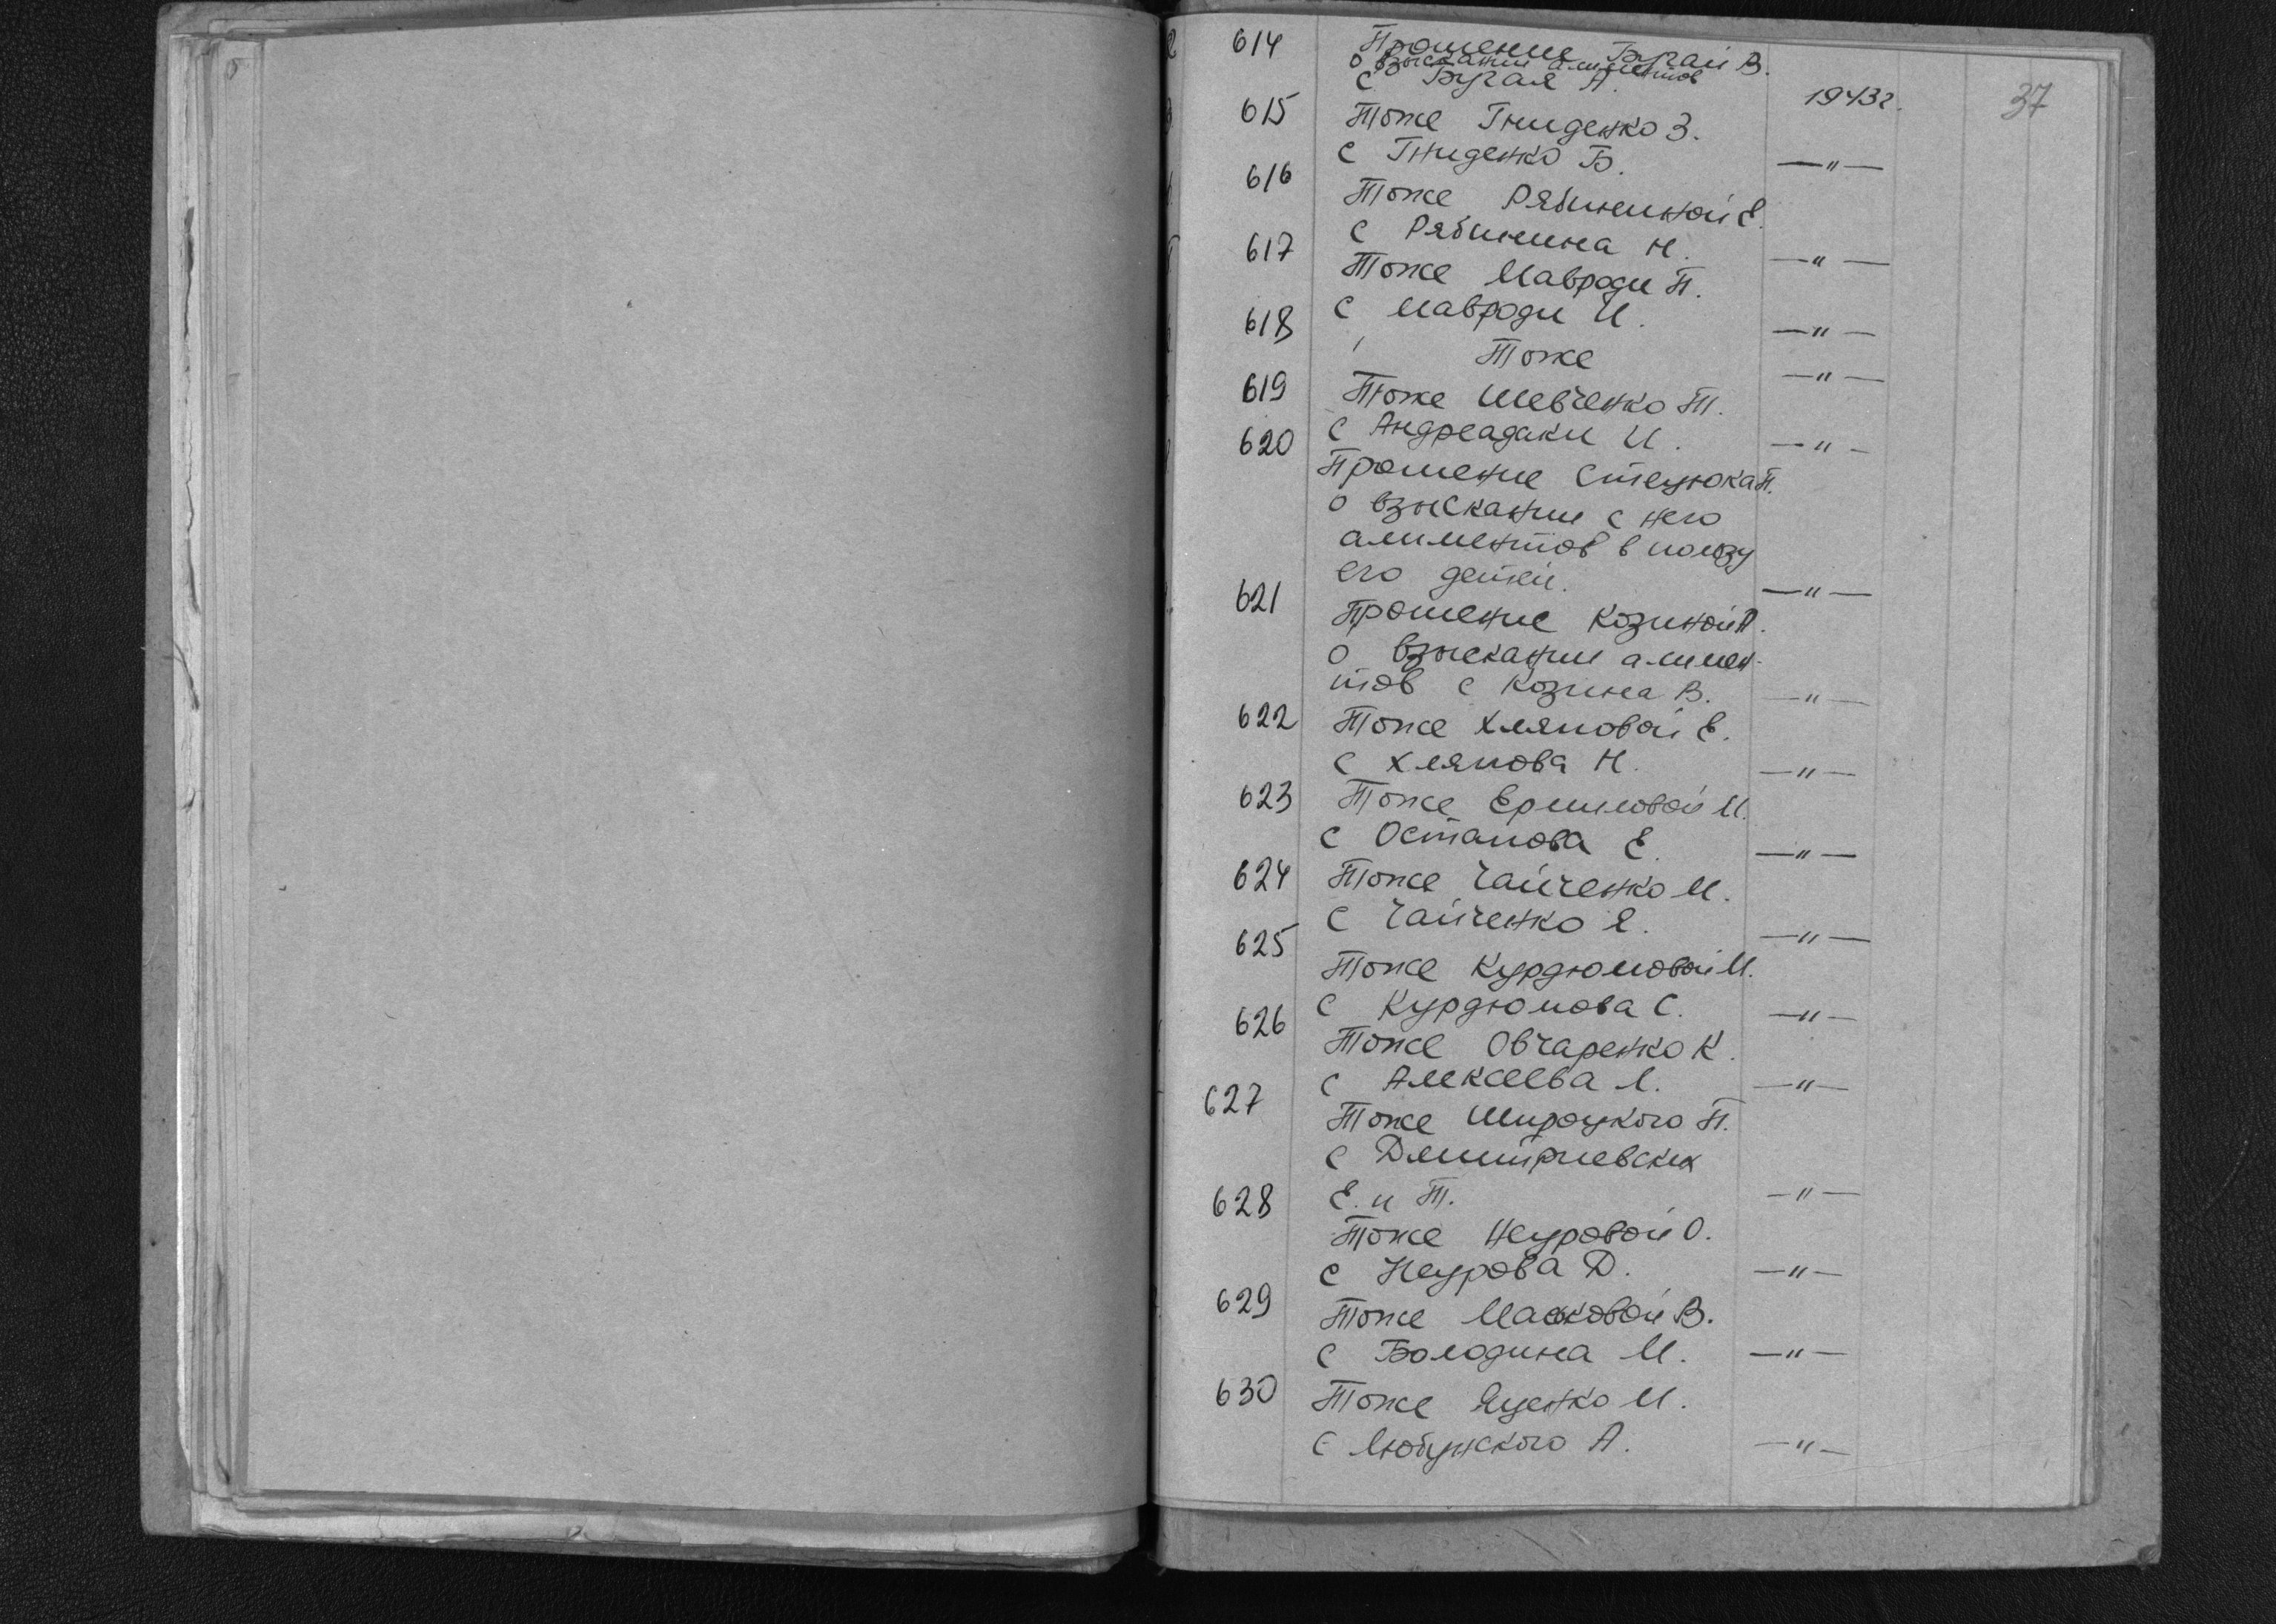 614 Прошение Бугай В.
о взыскании алиментов
с Бугая А. 1943г. 37
615 Тоже Гниденко З.
с Гниденко Б. —"—
616 Тоже Рябининой Е.
с Рябинина Н. —"—
617 Тоже Мавроди П.
с Мавроди И. —"—
618 Тоже —"—
619 Тоже Шевченко Т.
с Андреадаки И. —"—
620 Прошение Стецюка П.
о взыскании с него
алиментов в пользу
его детей. —"—
621 Прошение Козиной А.
о взыскании алимен-
тов с Козина В. —"—
622 Тоже Хляповой Е.
с Хляпова Н. —"—
623 Тоже Ермиловой М.
с Остапова Е. —"—
624 Тоже Чайченко М.
с Чайченко Я. —"—
625 Тоже Курдюмовой М.
с Курдюмова С. —"—
626 Тоже Овчаренко К.
с Алексеева Л. —"—
627 Тоже Широцкого П.
с Дмитриевских
Е. и Т. —"—
628 Тоже Неуровой О.
с Неурова Д. —"—
629 Тоже Масковой В.
с Бологдина М. —"—
630 Тоже Яценко М.
с Любунского А. —"—